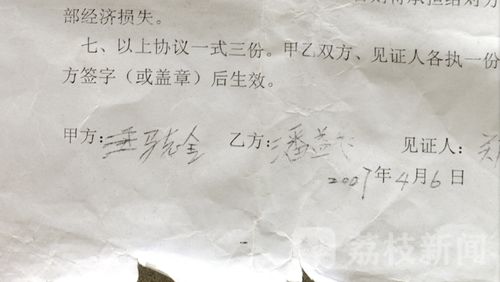 部经济损失。
七、以上协议一式三份。甲乙双方、见证人各执一份
方签字（或盖章）后生效。
甲方： 乙方：潘 见证人：
2007年4月6日
荔枝新闻